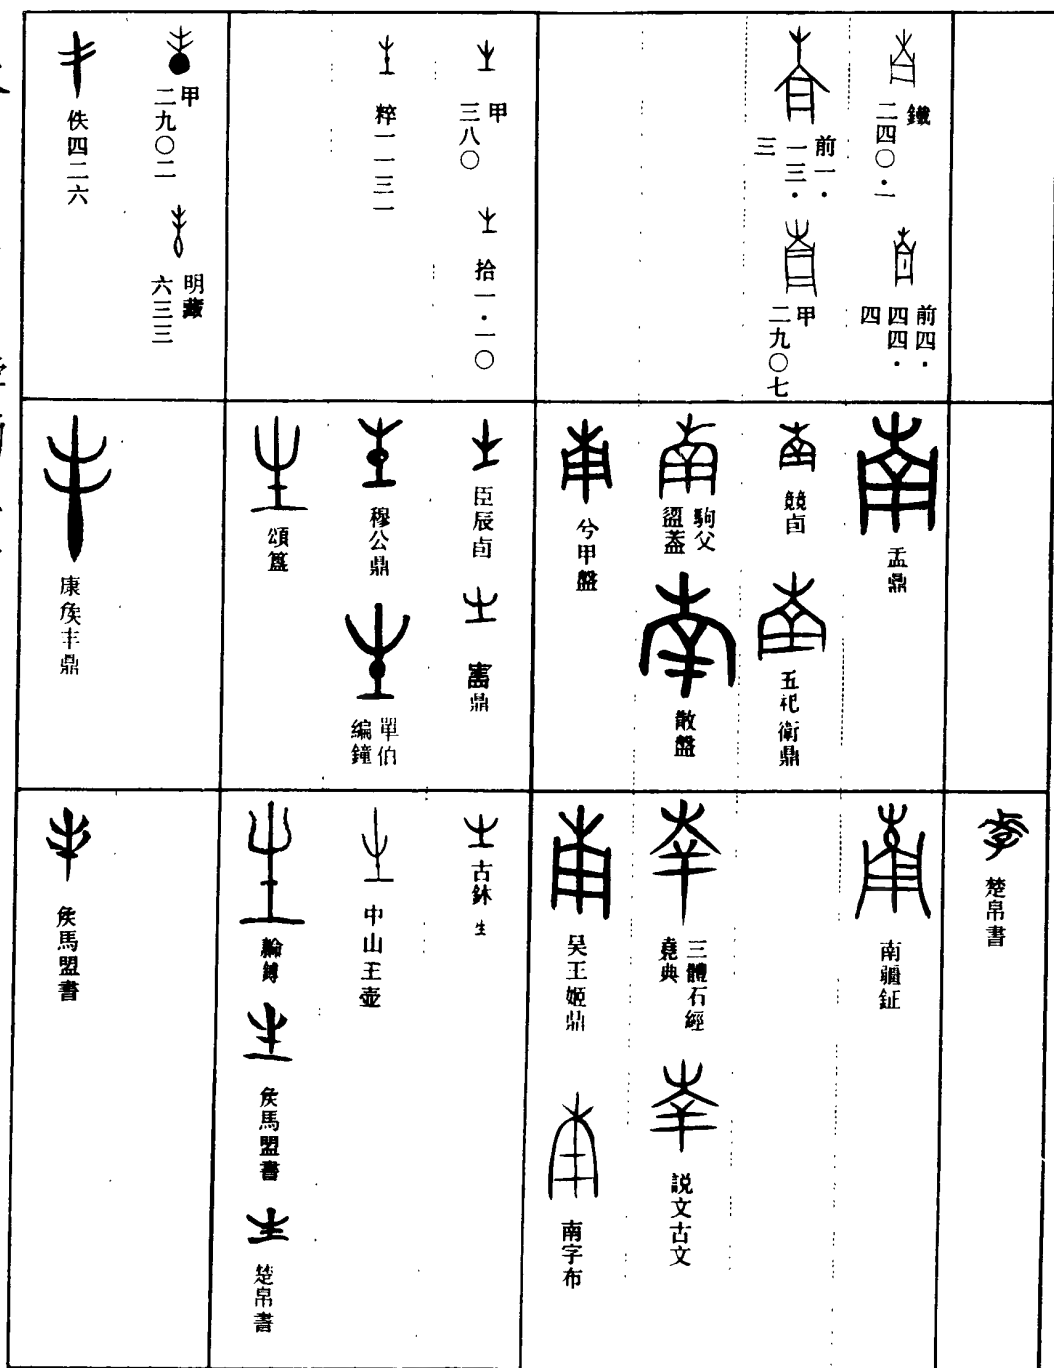 鐵
二四〇・一
前四・
四四・
四
前一・
一三・
三
甲
二九〇七
甲
三八〇
拾一・一〇
粹一一三一
甲
二九〇二
明藏
六三三
佚四二六
盂鼎
競卣
五祀衛鼎
駒父
盨蓋
散盤
兮甲盤
臣辰卣
鼎
穆公鼎
單伯
編鐘
頌簋
康矦丰鼎
楚帛書
南疆鉦
三體石經
堯典
説文古文
吴王姬鼎
南字布
古鉨 生
中山王壺
鎛
矦馬盟書
楚帛書
矦馬盟書